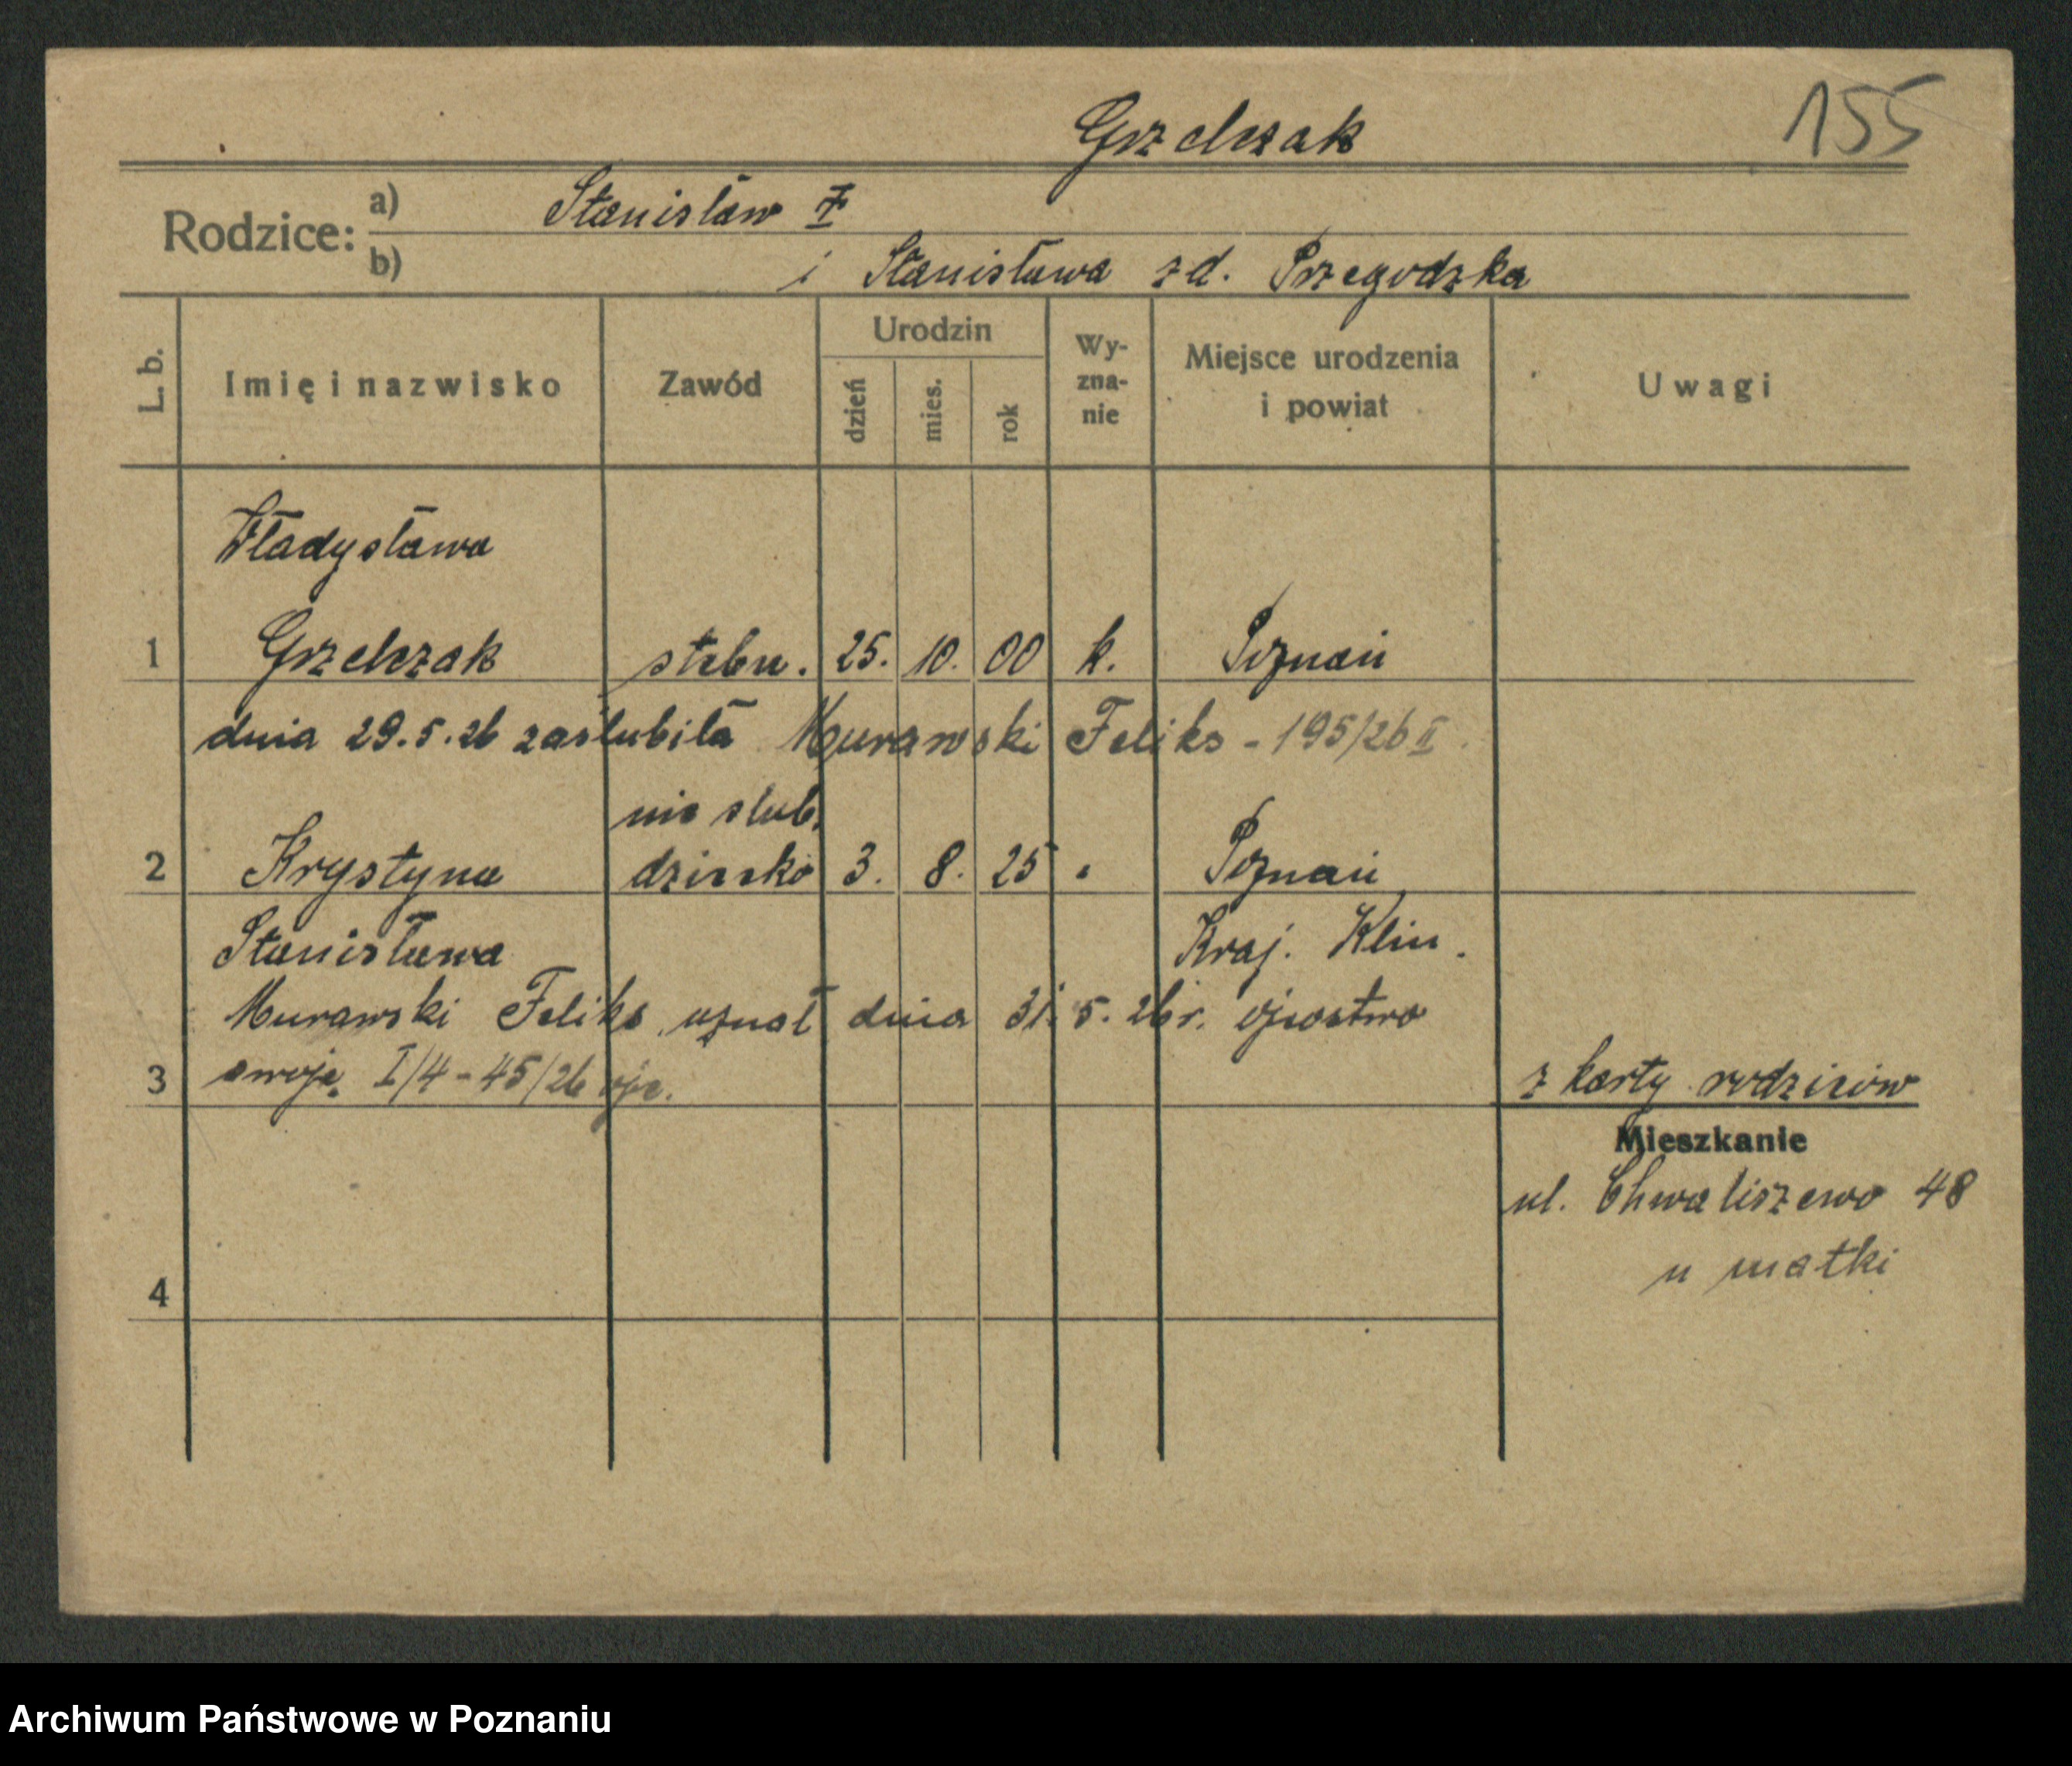 Grzelczak 155
Rodzice: a) Stanisław
b) i Stanisława zd. Przegodzka
L. b.
Imię i nazwisko
Zawód
Urodzin
dzień
mies.
rok
Wy-
zna-
nie
Miejsce urodzenia
i powiat
Uwagi
Władysława
1 Grzelczak stebn. 25. 10. 00 k. Poznań
dnia 29.5.26 zaślubiła Murawski Feliks - 195/26 II
nieślub.
2 Krystyna dziecko 3. 8. 25 " Poznań
Stanisława Kraj. Klin.
Murawski Feliks uznał dnia 31.5.26r. ojcostwo
3 swoje. I/4-45/26 ojc. z karty rodziców
Mieszkanie
ul. Chwaliszewo 48
u matki
4
Archiwum Państwowe w Poznaniu